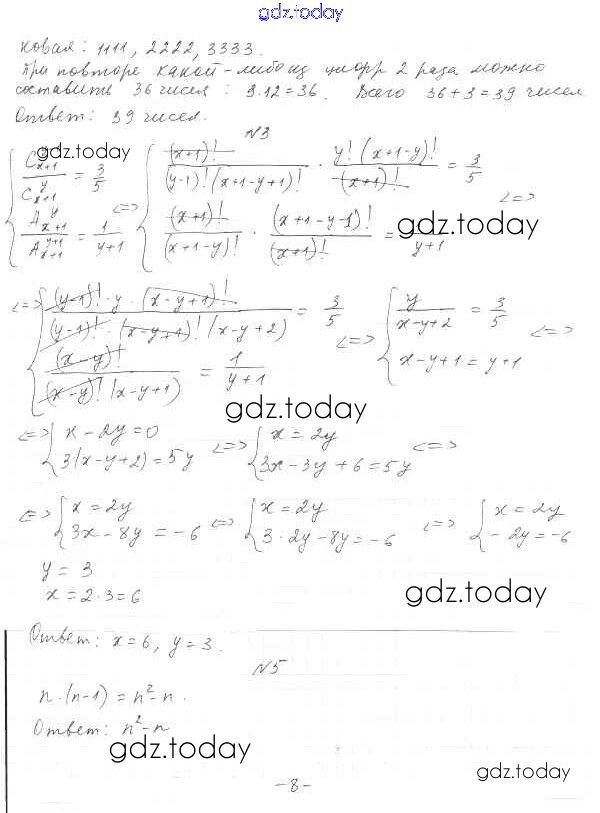 gdz.today
ковая: 1111, 2222, 3333.
При повторе какой-либо из цифр 2 раза можно
составить 36 чисел: 3·12=36. Всего 36+3=39 чисел
Ответ: 39 чисел.
N3
gdz.today
{ C^{y-1}_{x+1} / C^{y}_{x+1} = 3/5 <=> { (x+1)! / (y-1)!(x+1-y+1)! · y!(x+1-y)! / (x+1)! = 3/5 <=>
A^{y}_{x+1} / A^{y+1}_{x+1} = 1/(y+1) (x+1)! / (x+1-y)! · (x+1-y-1)! / (x+1)! = /(y+1)
gdz.today
<=> { (y-1)!·y·(x-y+1)! / (y-1)!·(x-y+1)!(x-y+2) = 3/5 <=> { y/(x-y+2) = 3/5 <=>
(x-y)! / (x-y)!(x-y+1) = 1/(y+1) x-y+1 = y+1
gdz.today
<=> { x-2y=0 <=> { x=2y <=>
3(x-y+2)=5y 3x-3y+6=5y
<=> { x=2y <=> { x=2y <=> { x=2y
3x-8y=-6 3·2y-8y=-6 -2y=-6
y=3
x=2·3=6
gdz.today
Ответ: x=6, y=3.
N5
n·(n-1) = n²-n.
Ответ: n²-n
gdz.today
gdz.today
-8-